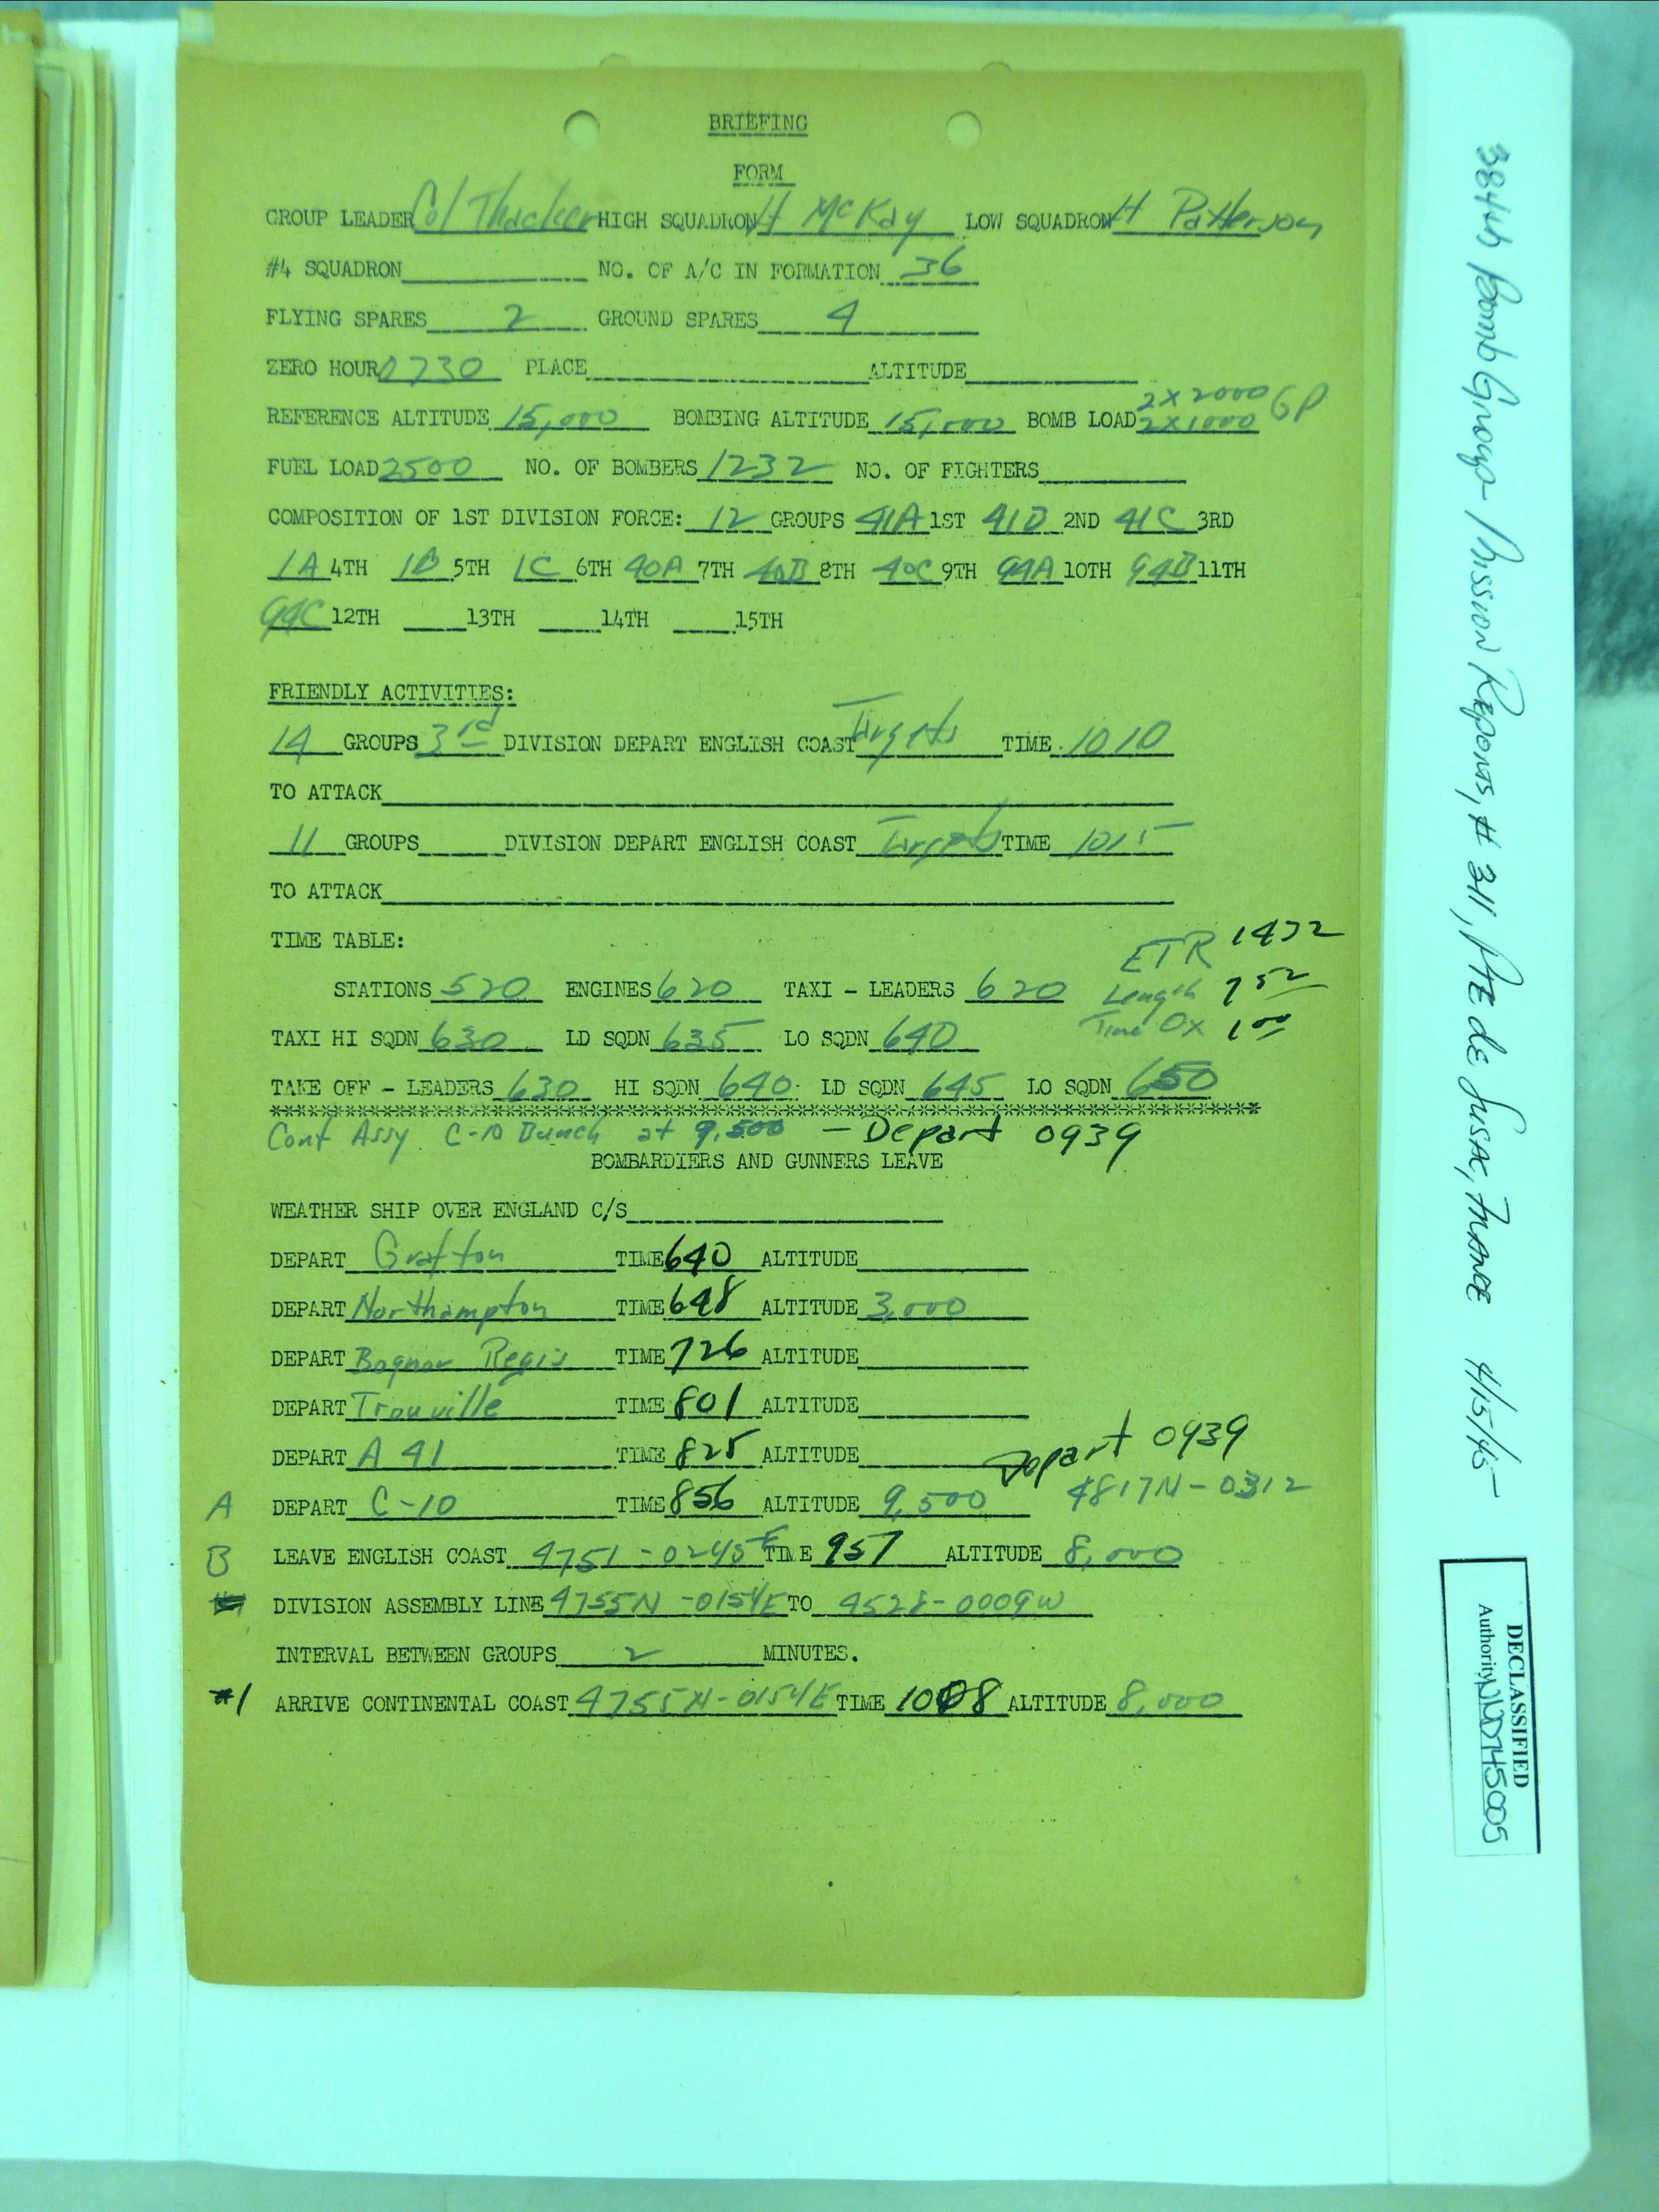 BRIEFING
FORM
GROUP LEADER Col Thacker HIGH SQUADRON Lt McKay LOW SQUADRON Lt Patterson
#4 SQUADRON____ NO. OF A/C IN FORMATION 36
FLYING SPARES 2 GROUND SPARES 4
ZERO HOUR 0730 PLACE____ ALTITUDE____
2X2000 GP
REFERENCE ALTITUDE 15,000 BOMBING ALTITUDE 15,000 BOMB LOAD 2X1000
FUEL LOAD 2500 NO. OF BOMBERS 1232 NO. OF FIGHTERS____
COMPOSITION OF 1ST DIVISION FORCE: 12 GROUPS 41A 1ST 41B 2ND 41C 3RD
1A 4TH 1B 5TH 1C 6TH 40A 7TH 40B 8TH 40C 9TH 94A 10TH 94B 11TH
94C 12TH ____13TH ____14TH ____15TH
FRIENDLY ACTIVITIES:
14 GROUPS 3rd DIVISION DEPART ENGLISH COAST Targets TIME 1010
TO ATTACK____
11 GROUPS____ DIVISION DEPART ENGLISH COAST Targets TIME 1015
TO ATTACK____
TIME TABLE:
ETR 1432
STATIONS 520 ENGINES 620 TAXI - LEADERS 620 Length 7 52
TAXI HI SQDN 630 LD SQDN 635 LO SQDN 640 Time Ox 1 00
TAKE OFF - LEADERS 630 HI SQDN 640 LD SQDN 645 LO SQDN 650
****************************************************************
Cont Assy C-10 Bunch at 9,500 - Depart 0939
BOMBARDIERS AND GUNNERS LEAVE
WEATHER SHIP OVER ENGLAND C/S____
DEPART Grafton TIME 640 ALTITUDE____
DEPART Northampton TIME 648 ALTITUDE 3,000
DEPART Bognor Regis TIME 726 ALTITUDE____
DEPART Trouville TIME 801 ALTITUDE____
DEPART A 41 TIME 825 ALTITUDE____ Depart 0939
A DEPART C-10 TIME 856 ALTITUDE 9,500 4817N-0312
B LEAVE ENGLISH COAST 4751-0245E TIME 957 ALTITUDE 8,000
DIVISION ASSEMBLY LINE 4755N-0154E TO 4528-0009W
INTERVAL BETWEEN GROUPS 2 MINUTES.
#1 ARRIVE CONTINENTAL COAST 4755N-0154E TIME 1008 ALTITUDE 8,000
384th Bomb Group - Mission Reports, # 311, Pte de Susac, France 4/15/45
DECLASSIFIED
Authority NND745005